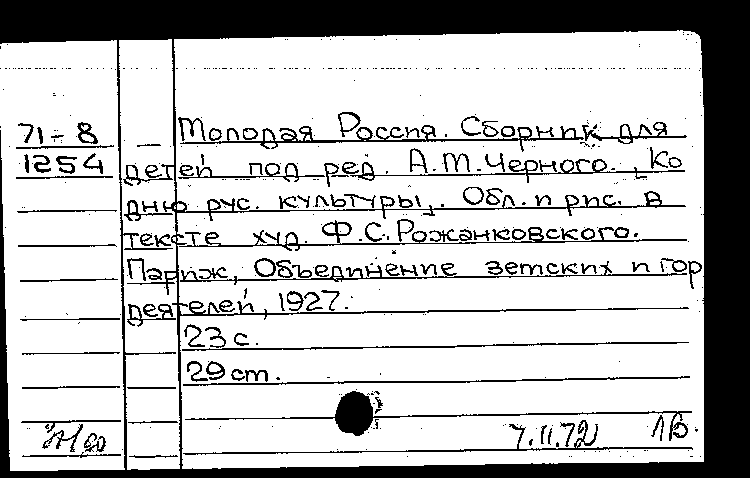 71-8
1254
Молодая Россия. Сборник для
детей под ред. А.М.Черного. [Ко
дню рус. культуры]. Обл. и рис. в
тексте худ. Ф.С.Рожанковского.
Париж, Объединение земских и гор
деятелей, 1927.
23 с.
29 cm.
7.II.72 1Б.